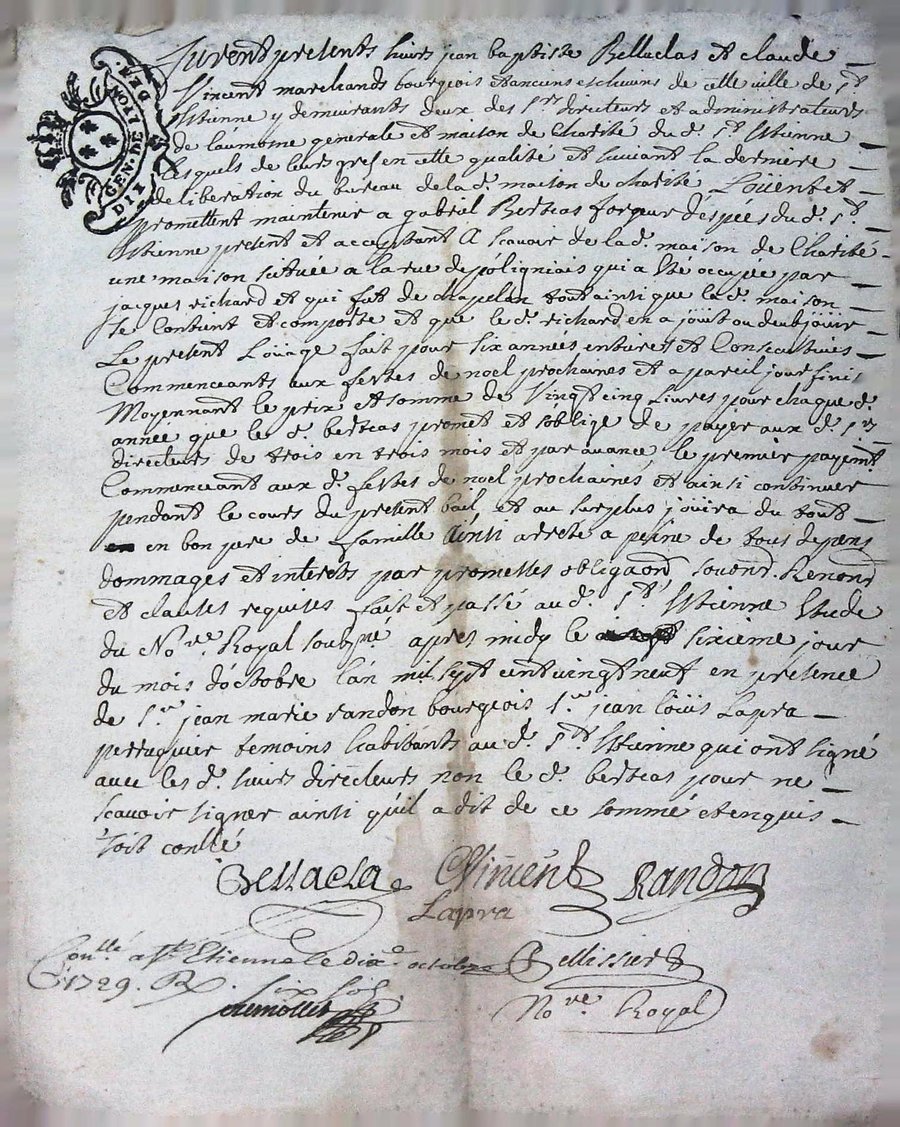 GEN. DE LYON DIX DEN.
furent presents sieurs jean baptiste Bellaclas et claude
Vincent marchands bourgeois et anciens eschevins de cette ville de St
Estienne y demeurants deux des srs directeurs et administrateurs
de l'aumosne generale et maison de Charité du d. St Estienne
Lesquels de leurs gres en cette qualité et suivant la derniere
deliberation du bureau de la d. maison de charité Loüent et
promettent maintenir a gabriel Bertas forgeur d'espées du d. St
Estienne present et acceptant A scavoir de la d. maison de Charité
une maison scituée a la rue de poligniais qui a esté occupée par
jacques richard et qui fut de chapelan tout ainsi que la d. maison
se Contient et comporte et que le d. richard en a joüit ou deub joüir
Le present Loüage fait pour six années entieres et Consecutives
Commenceants aux festes de noel prochaines et a pareil jour finis
Moyennant le prix et somme de Vingt cinq Livres pour chaque d.
année que le d. bertas promet et s'oblige de payer aux d. srs
directeurs de trois en trois mois et par avance le premier payemt
Commenceant aux d. festes de noel prochaines et ainsi continuer
pendant le cours du present bail, et au surplus jouira du tout
en bon pere de famille Ainsi arresté a peine de tous depens
dommages et interests par promesses obligaons soumons Renons
et clauses requises fait et passé au d. St Estienne Estude
du Nore Royal soubsné apres midy le sixieme jour
du mois d'octobre l'an mil sept cent vingt neuf en presence
de Sr jean marie randon bourgeois Sr jean Loüis Lapra
perruquier temoins habitants au d. St Estienne qui ont signé
avec les d. sieurs directeurs non le d. bertas pour ne
scavoir signer ainsi qu'il a dit de ce sommé et enquis
soit conllé
Bellacla CVincent Randon
Lapra
Conllé a St Etienne le dixe octobre Pellissier
1729. R six sols
Nore Royal